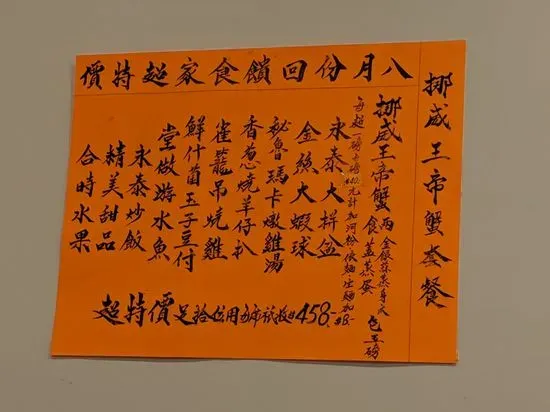 挪威王帝蟹套餐
八月份回饋食家超特價
挪威王帝蟹兩食
金銀蒜蒸身爪
蓋蒸蛋
包五磅
每超一磅 元計加河粉 麵加$8.-
永泰大拼盆
金絲大蝦球
秘魯瑪卡燉雞湯
香蔥燒羊仔扒
雀籠吊燒雞
鮮什菌玉子豆付
堂做游水魚
永泰炒飯
精美甜品
合時水果
超特價 足拾位用 $458.-